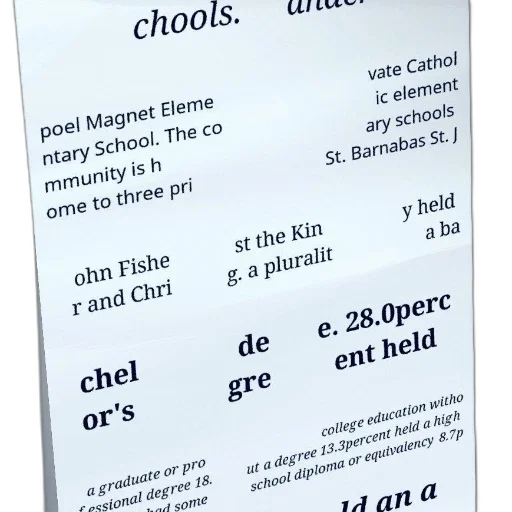 chools.
poel Magnet Eleme
ntary School. The co
mmunity is h
ome to three pri
vate Cathol
ic element
ary schools
St. Barnabas St. J
ohn Fishe
r and Chri
st the Kin
g. a pluralit
y held
a ba
chel
or's
de
gre
e. 28.0perc
ent held
a graduate or pro
fessional degree 18.
had some
college education witho
ut a degree 13.3percent held a high
school diploma or equivalency 8.7p
ld an a